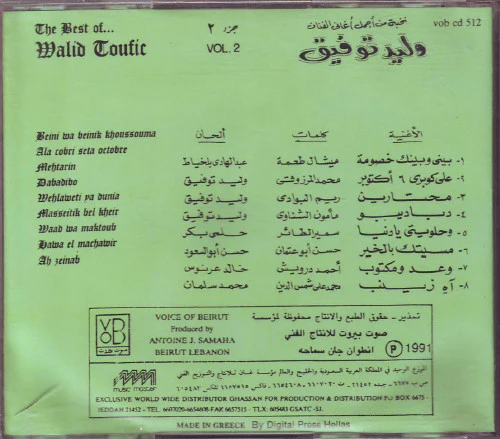 The Best of...
Walid Toufic
جزء ٢
VOL. 2
نخبة من أجمل أغاني الفنان
وليد توفيق
vob cd 512
Beini wa beinik khoussouma
Ala cobri seta octobre
Mehtarin
Dabadibo
Wehlaweti ya dunia
Masseitik bel kheir
Waad wa maktoub
Hawa el machawir
Ah zeinab
الأغنية كلمات ألحان
١- بيني وبينك خصومة ميشال طعمة عبدالهادي بلخياط
٢- على كوبري ٦ أكتوبر محمد المرزوقي وليد توفيق
٣- محتارين ريم البوادي وليد توفيق
٤- دباديبو مأمون الشناوي وليد توفيق
٥- وحلويتي يا دنيا سمير الطائر حلمي بكر
٦- مسيتك بالخير حسن أبو عتمان حسن أبو السعود
٧- وعد ومكتوب أحمد درويش خالد
٨- آه زينب محمد علي شمس الدين محمد سلمان
VOB
صوت بيروت
VOICE OF BEIRUT
Produced by
ANTOINE J. SAMAHA
BEIRUT LEBANON
تحذير - حقوق الطبع والانتاج محفوظة لمؤسسة
صوت بيروت للانتاج الفني
انطوان جان سماحه
P 1991
music master
الموزع الوحيد في المملكة العربية السعودية والخليج والعالم مؤسسة غسان للانتاج والتوزيع الفني
EXCLUSIVE WORLD WIDE DISTRIBUTOR GHASSAN FOR PRODUCTION & DISTRIBUTION P.O BOX 6675
JEDDAH 21452 - TEL. 6607020-6654608-FAX 6657515 - TLX: 605483 GSATC-SJ.
MADE IN GREECE By Digital Press Hellas